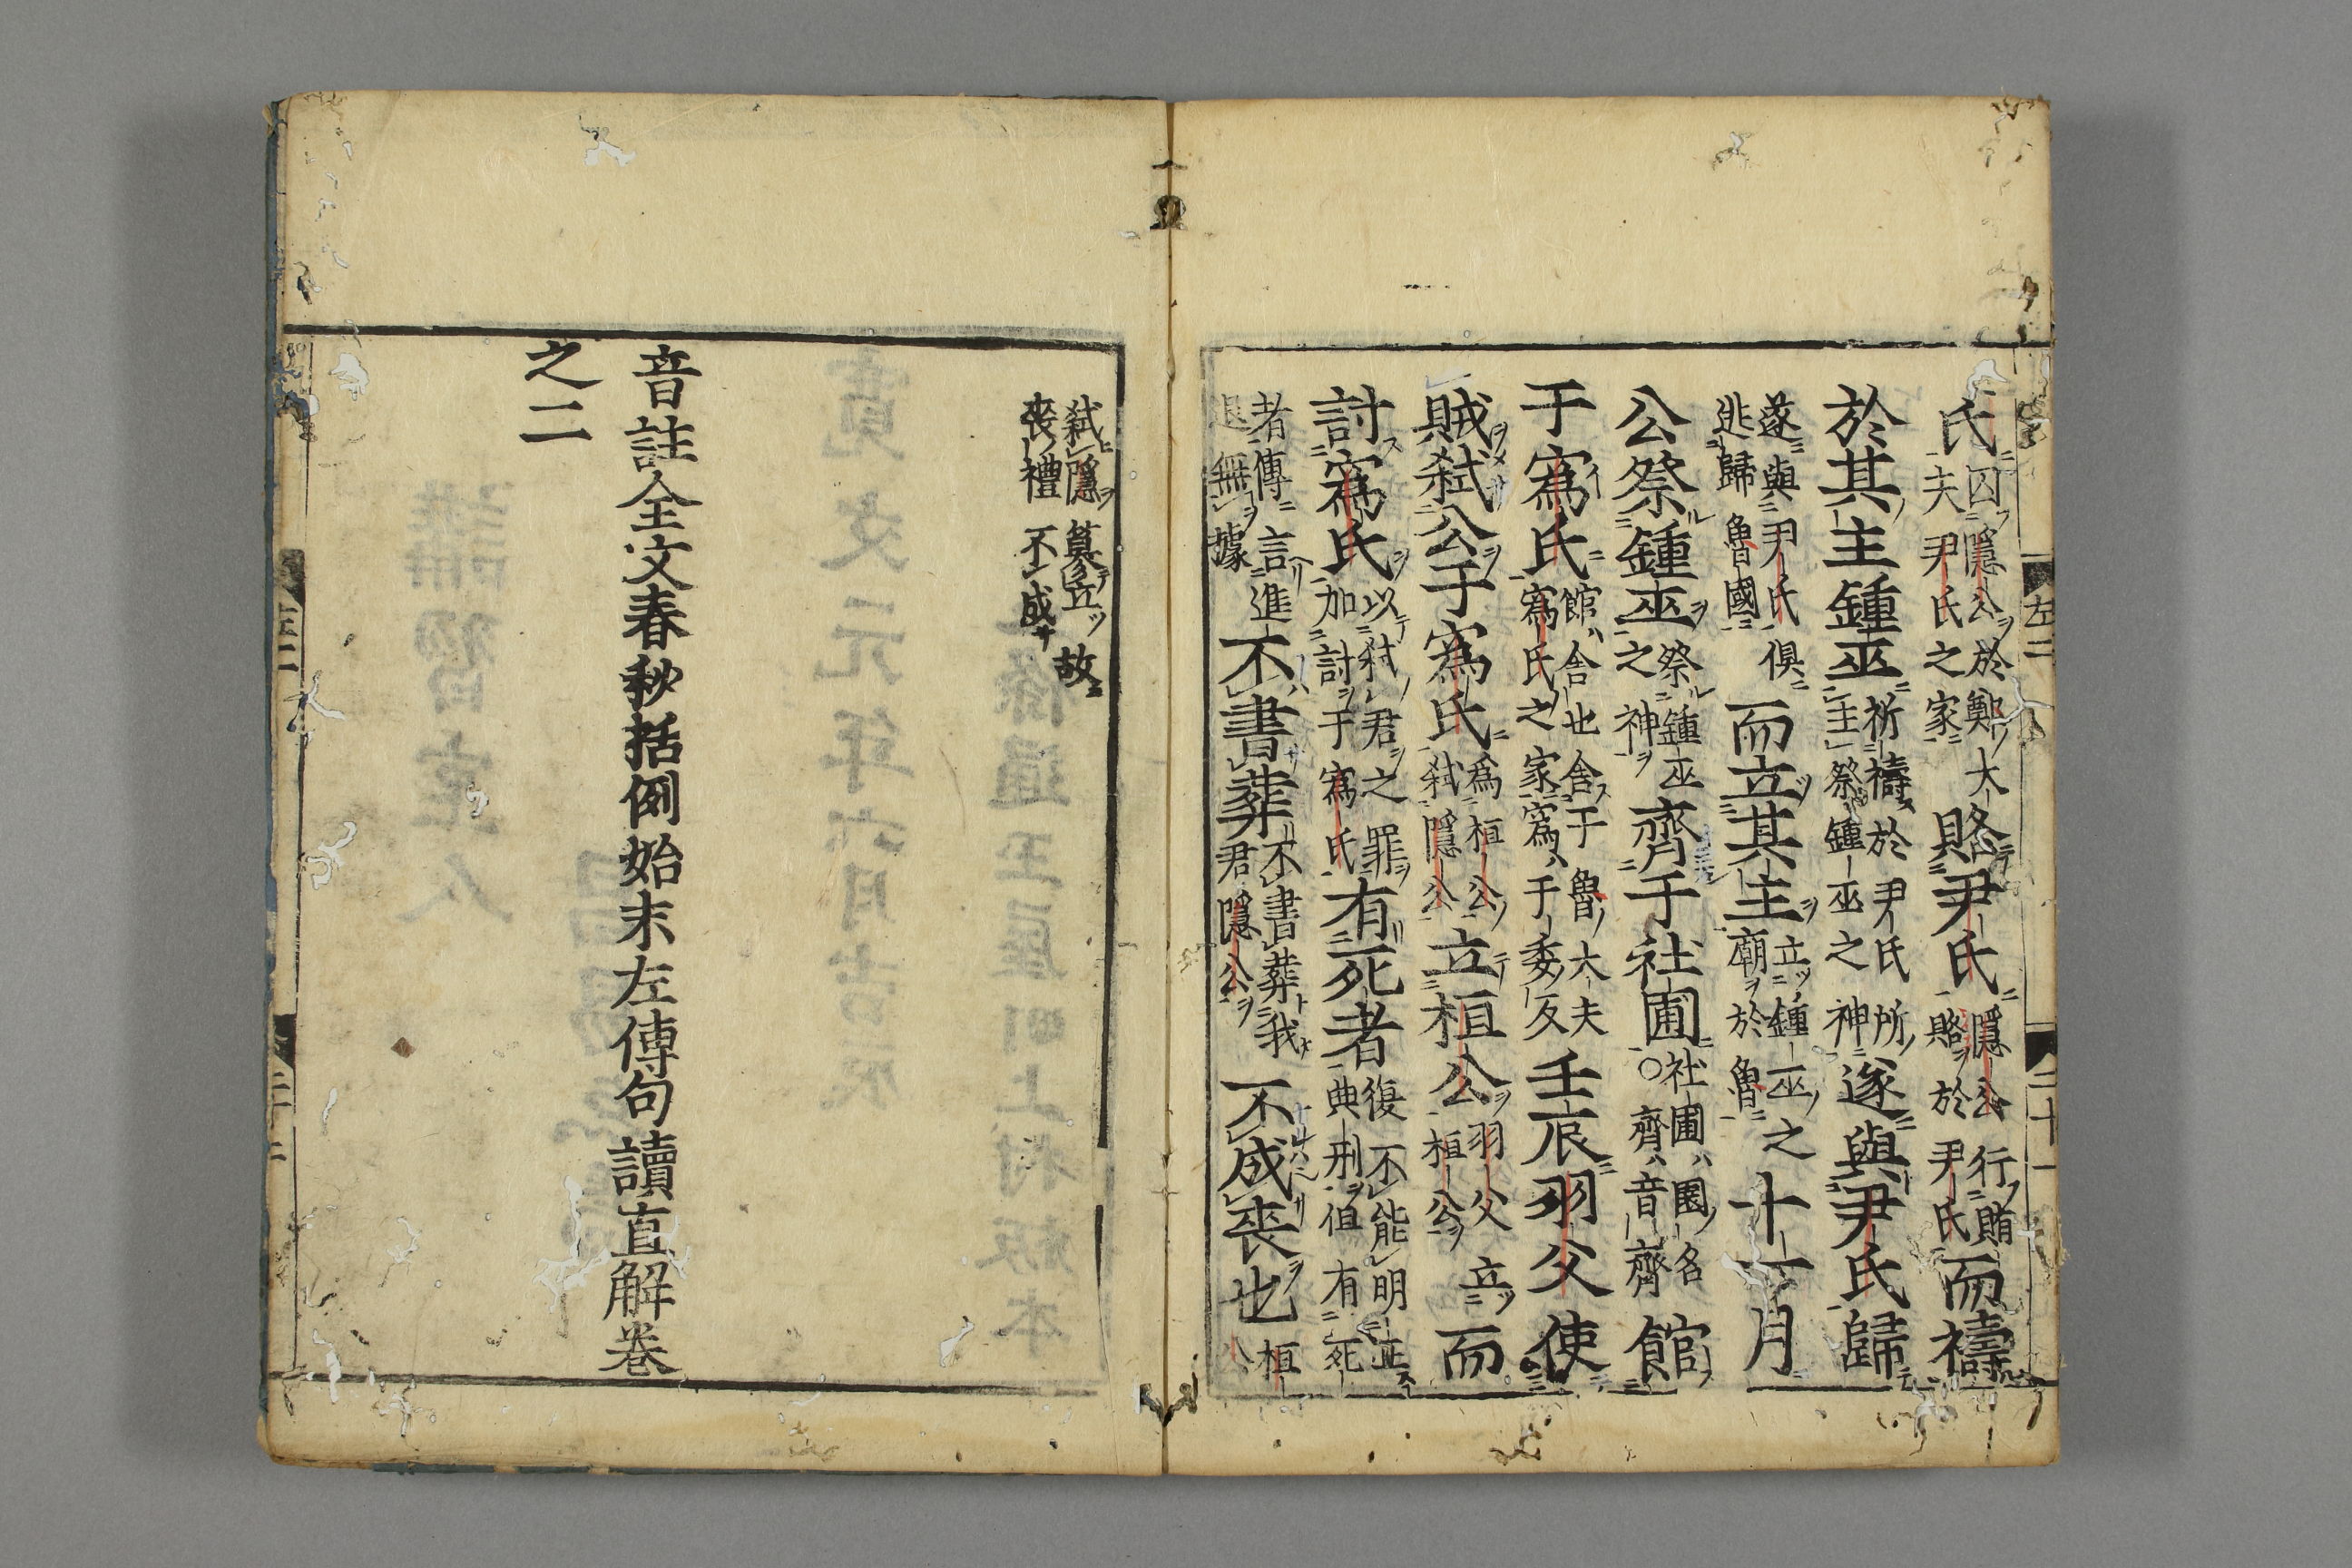 氏囚隱公於鄭大夫尹氏之家賂尹氏隱公行賄賂於尹氏而禱
於其主鍾巫祈禱於尹氏所主祭鍾巫之神遂與尹氏歸
遂與尹氏俱逃歸魯國而立其主立鍾巫之廟於魯十一月
公祭鍾巫祭鍾巫之神齊于社圃社圃園名○齊音齋館
于寪氏館舍也舍于魯大夫寪氏之家寪于委反壬辰羽父使
賊弑公于寪氏爲桓公弑隱公立桓公羽父立桓公而
討寪氏以弑君之罪加討于寪氏有死者復不能明正典刑但有死
者傳言進退無據不書葬不書葬我君隱公不成喪也桓公
弑隱簒立故喪禮不成
音註全文春秋括例始末左傳句讀直解卷
之二
左二
二十一